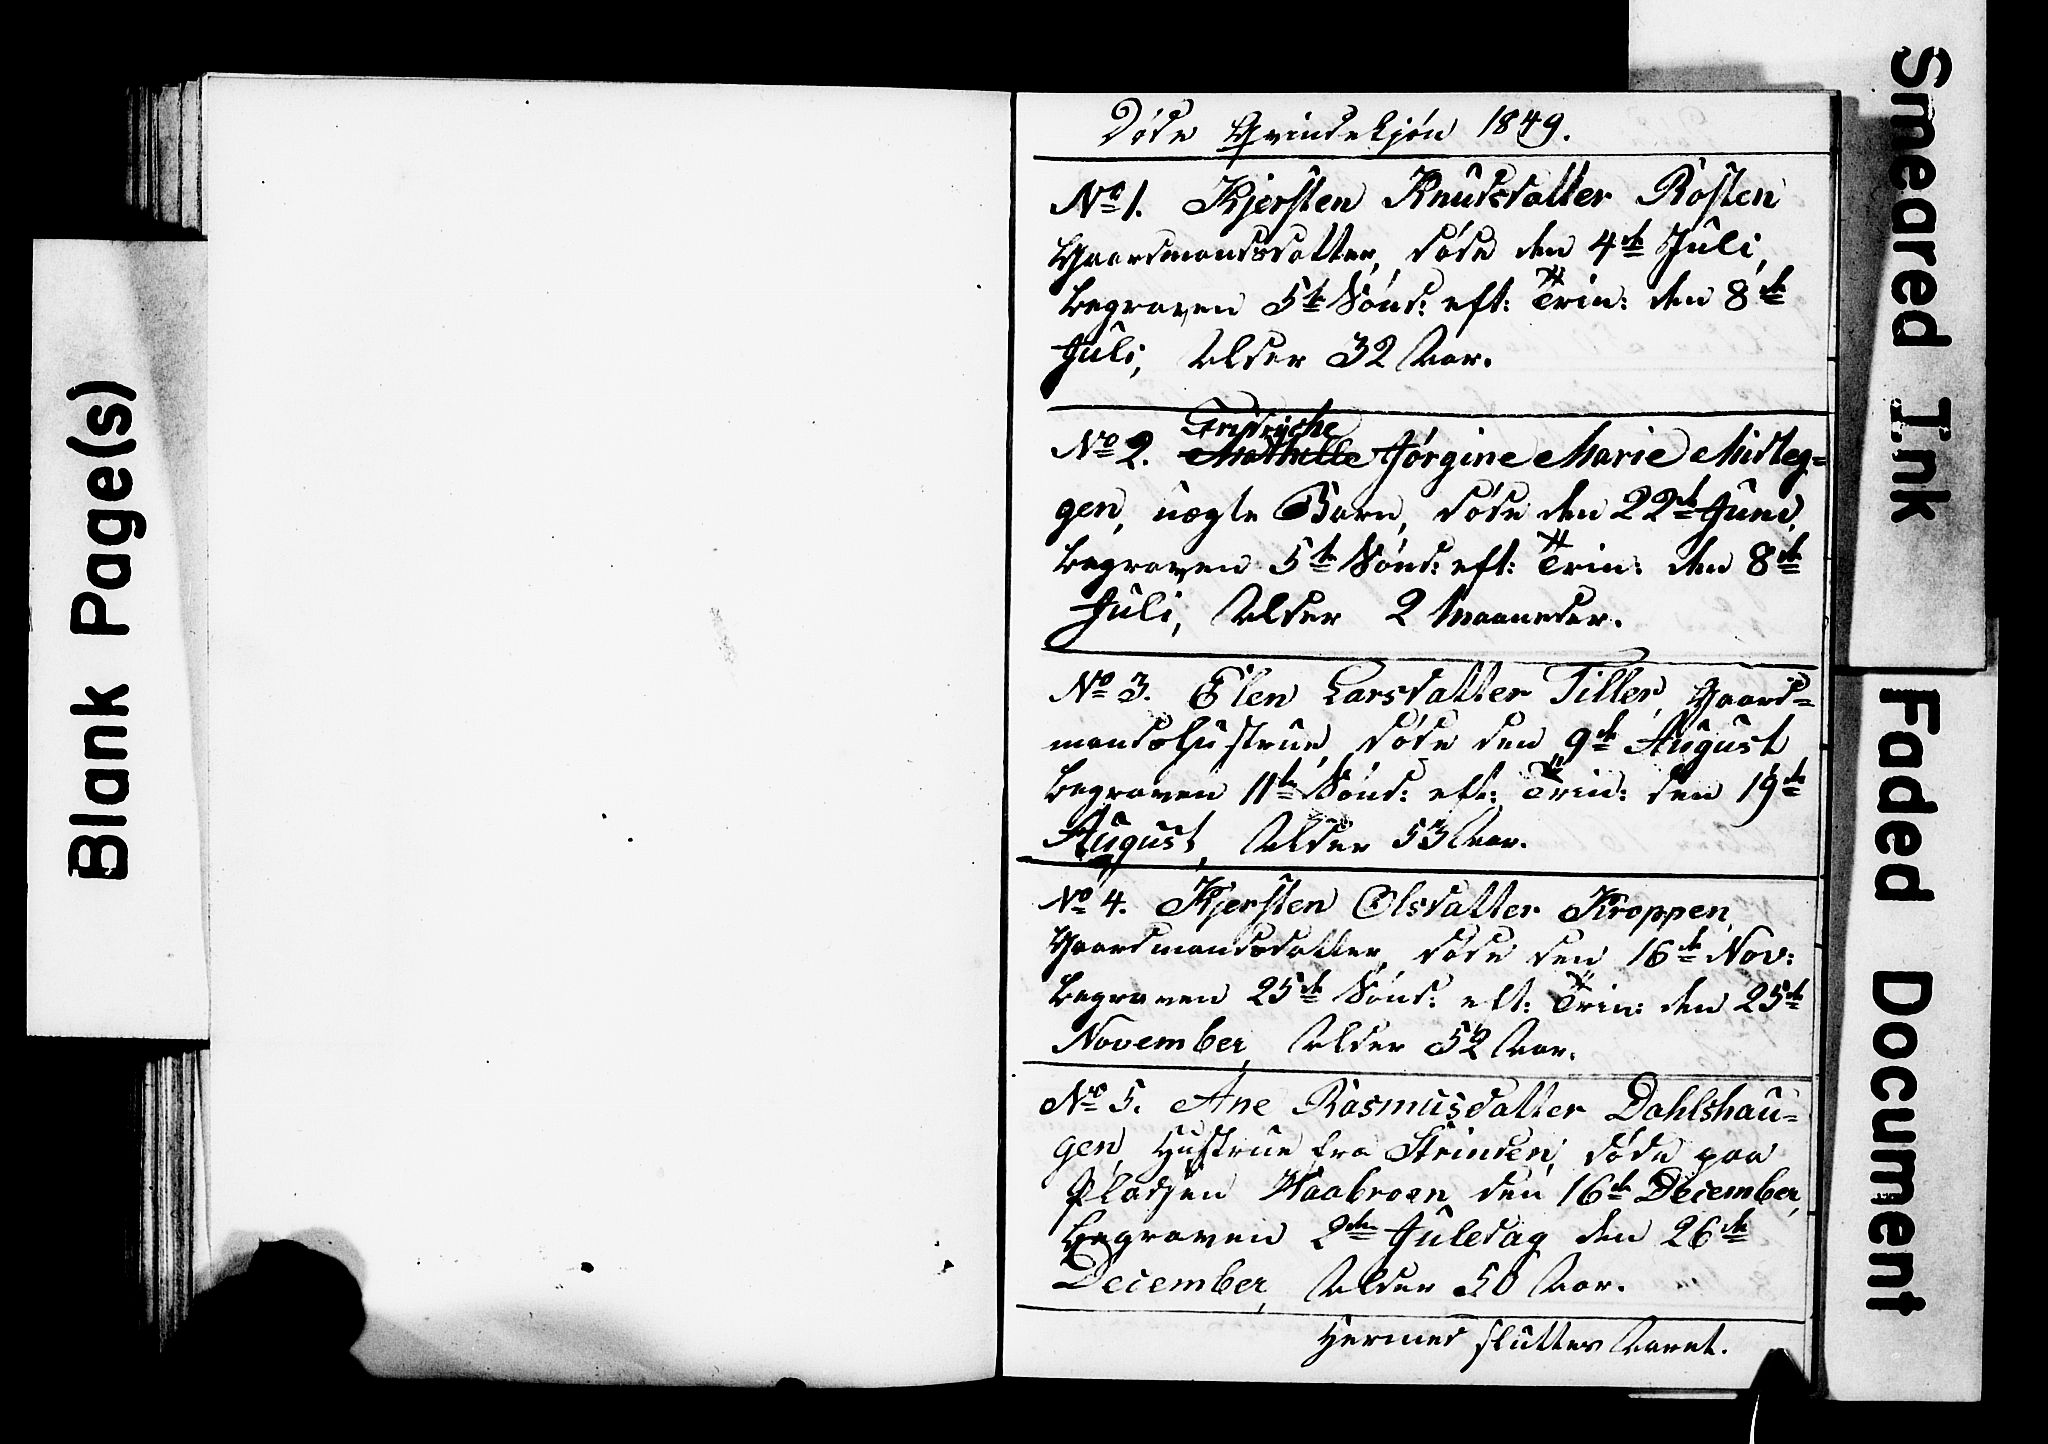 Døde Qvindekjøn 1849.
No 1. Kjersten Knudsdatter Rosten
Gaardmandsdatter, døde den 4de Juli,
begraven 5te Sønd: eft: Trin: den 8de
Juli, Alder 32 Aar.
Fridriche
No 2. Mathille Jørgine Marie Midteg=
gen, uægte Barn, døde den 22de Juni,
begraven 5te Sønd: eft: Trin: den 8de
Juli, Alder 2 Maaneder.
No 3. Elen Larsdatter Tiller, Gaard=
mandshustrue, døde den 9de August
begraven 11te Sønd: eft: Trin: den 19de
August, Alder 53 Aar.
No 4. Kjersten Olsdatter Kroppen,
Gaardmandsdatter, døde den 16de Nov:
begraven 25de Sønd: eft: Trin: den 25de
November, Alder 52 Aar.
No 5. Ane Rasmusdatter Dahlshau=
gen, Hustrue fra Strinden, døde paa
Pladsen Haabroen den 16de December,
begraven 2den Juledag den 26de
December, Alder 50 Aar.
Hermed sluttes Aaret.
Blank Page(s)
Smeared Ink
Faded Document